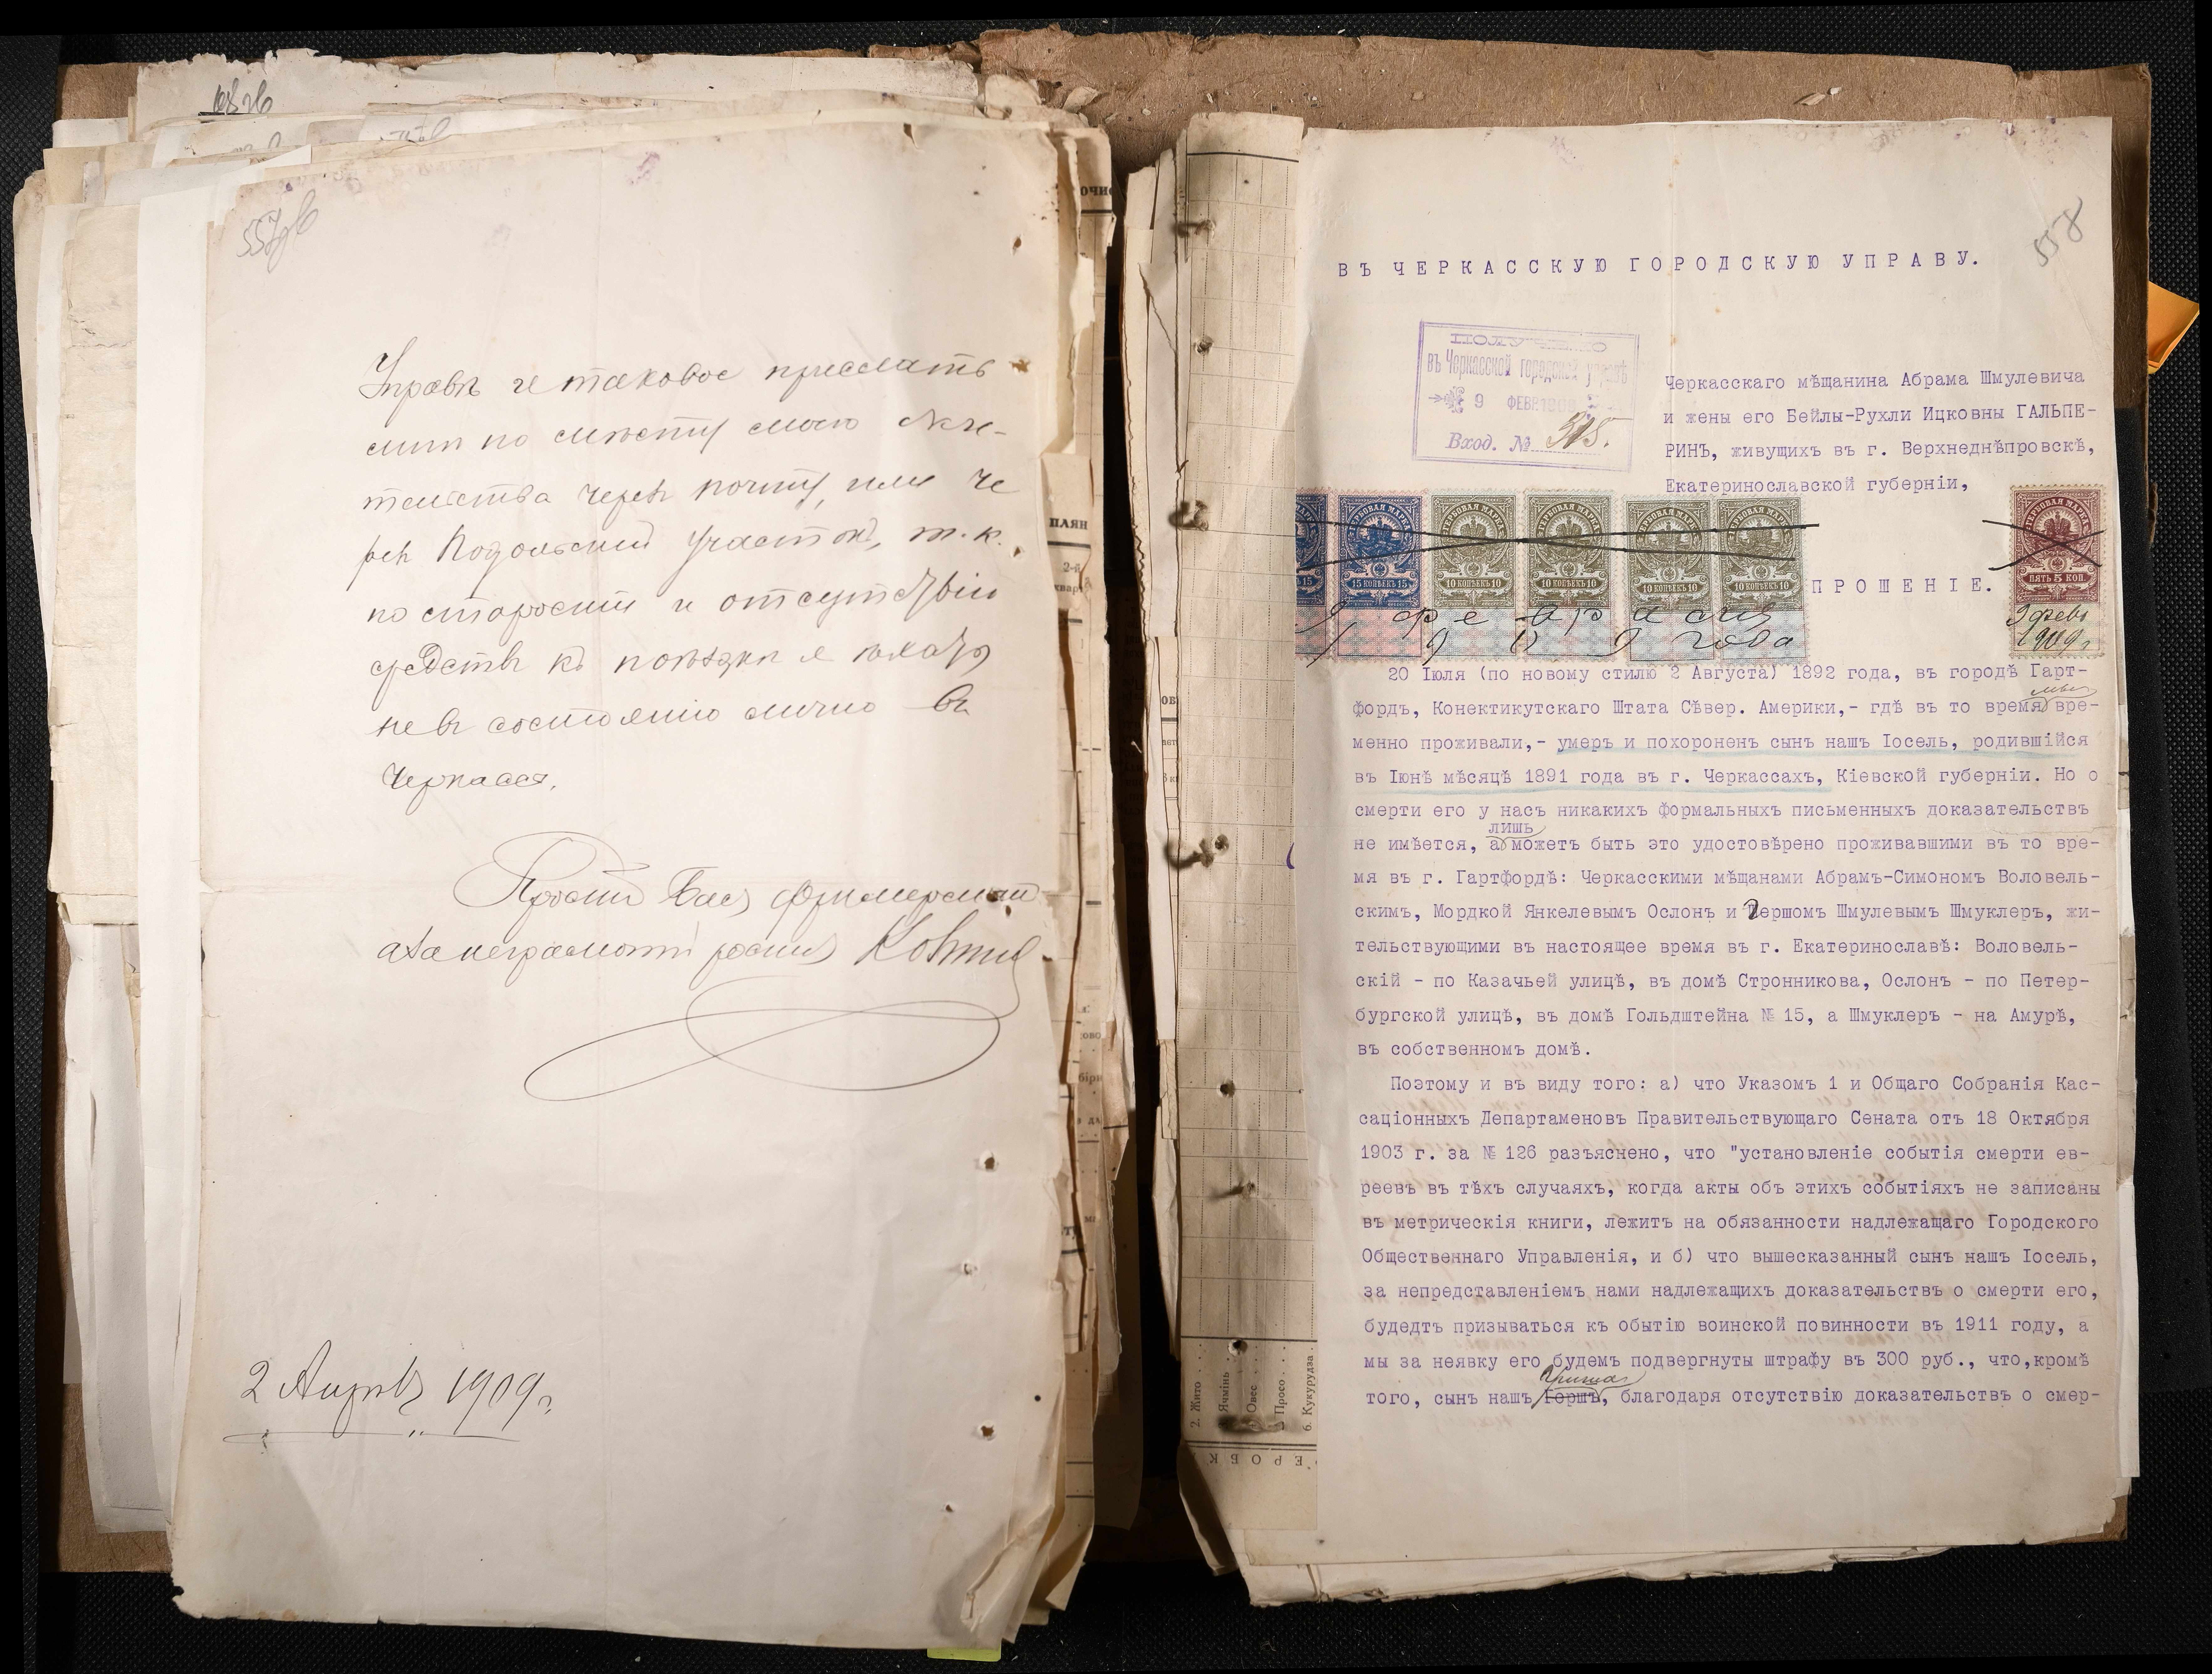 557об
Управѣ и таковое прислать
мнѣ по мѣсту моего жи-
тельства черезъ почту, или че
резъ Подольский участокъ, т.к.
по старости и отсутствію
средствъ къ поѣздки я
не въ состоянію лично въ
Черкассы.
а за неграмотн росписа
2 Апрѣля 1909 г.
558
ВЪ ЧЕРКАССКУЮ ГОРОДСКУЮ УПРАВУ.
ПОЛУЧЕНО
въ Черкасской городской управѣ
9 ФЕВР. 1909
Вход. №
Черкасскаго мѣщанина Абрама Шмулевича
и жены его Бейлы-Рухли Ицковны ГАЛЬПЕ-
РИНЪ, живущихъ въ г. Верхнеднѣпровскѣ,
Екатеринославской губерніи,
ГЕРБОВАЯ МАРКА ГЕРБОВАЯ МАРКА ГЕРБОВАЯ МАРКА ГЕРБОВАЯ МАРКА ГЕРБОВАЯ МАРКА ГЕРБОВАЯ МАРКА
15 15 КОПѢЕКЪ 15 10 КОПѢЕКЪ 10 10 КОПѢЕКЪ 10 10 КОПѢЕКЪ 10 10 КОПѢЕКЪ 10 ПЯТЬ 5 КОП.
ПРОШЕНІЕ.
9 февраля
1909 года
9 февр
1909 г.
20 Іюля (по новому стилю 2 Августа) 1892 года, въ городѣ Гарт-
мы
фордъ, Конектикутскаго Штата Сѣвер. Америки,- гдѣ въ то время вре-
менно проживали,- умеръ и похороненъ сынъ нашъ Іосель, родившійся
въ Іюнѣ мѣсяцѣ 1891 года въ г. Черкассахъ, Кіевской губерніи. Но о
смерти его у насъ никакихъ формальныхъ письменныхъ доказательствъ
лишь
не имѣется, а можетъ быть это удостовѣрено проживавшими въ то вре-
мя въ г. Гартфордѣ: Черкасскими мѣщанами Абрамъ-Симономъ Воловель-
скимъ, Мордкой Янкелевымъ Ослонъ и Гершомъ Шмулевымъ Шмуклеръ, жи-
тельствующими въ настоящее время въ г. Екатеринославѣ: Воловель-
скій - по Казачьей улицѣ, въ домѣ Стронникова, Ослонъ - по Петер-
бургской улицѣ, въ домѣ Гольдштейна № 15, а Шмуклеръ - на Амурѣ,
въ собственномъ домѣ.
Поэтому и въ виду того: а) что Указомъ 1 и Общаго Собранія Кас-
саціонныхъ Департаменовъ Правительствующаго Сената отъ 18 Октября
1903 г. за № 126 разъяснено, что "установленіе событія смерти ев-
реевъ въ тѣхъ случаяхъ, когда акты объ этихъ событіяхъ не записаны
въ метрическія книги, лежитъ на обязанности надлежащаго Городского
Общественнаго Управленія, и б) что вышесказанный сынъ нашъ Іосель,
за непредставленіемъ нами надлежащихъ доказательствъ о смерти его,
будедтъ призываться къ обытію воинской повинности въ 1911 году, а
мы за неявку его будемъ подвергнуты штрафу въ 300 руб., что,кромѣ
того, сынъ нашъ Гершъ, благодаря отсутствію доказательствъ о смер-
2. Жито
Ячмінь
Овес
Просо
6. Кукурудза